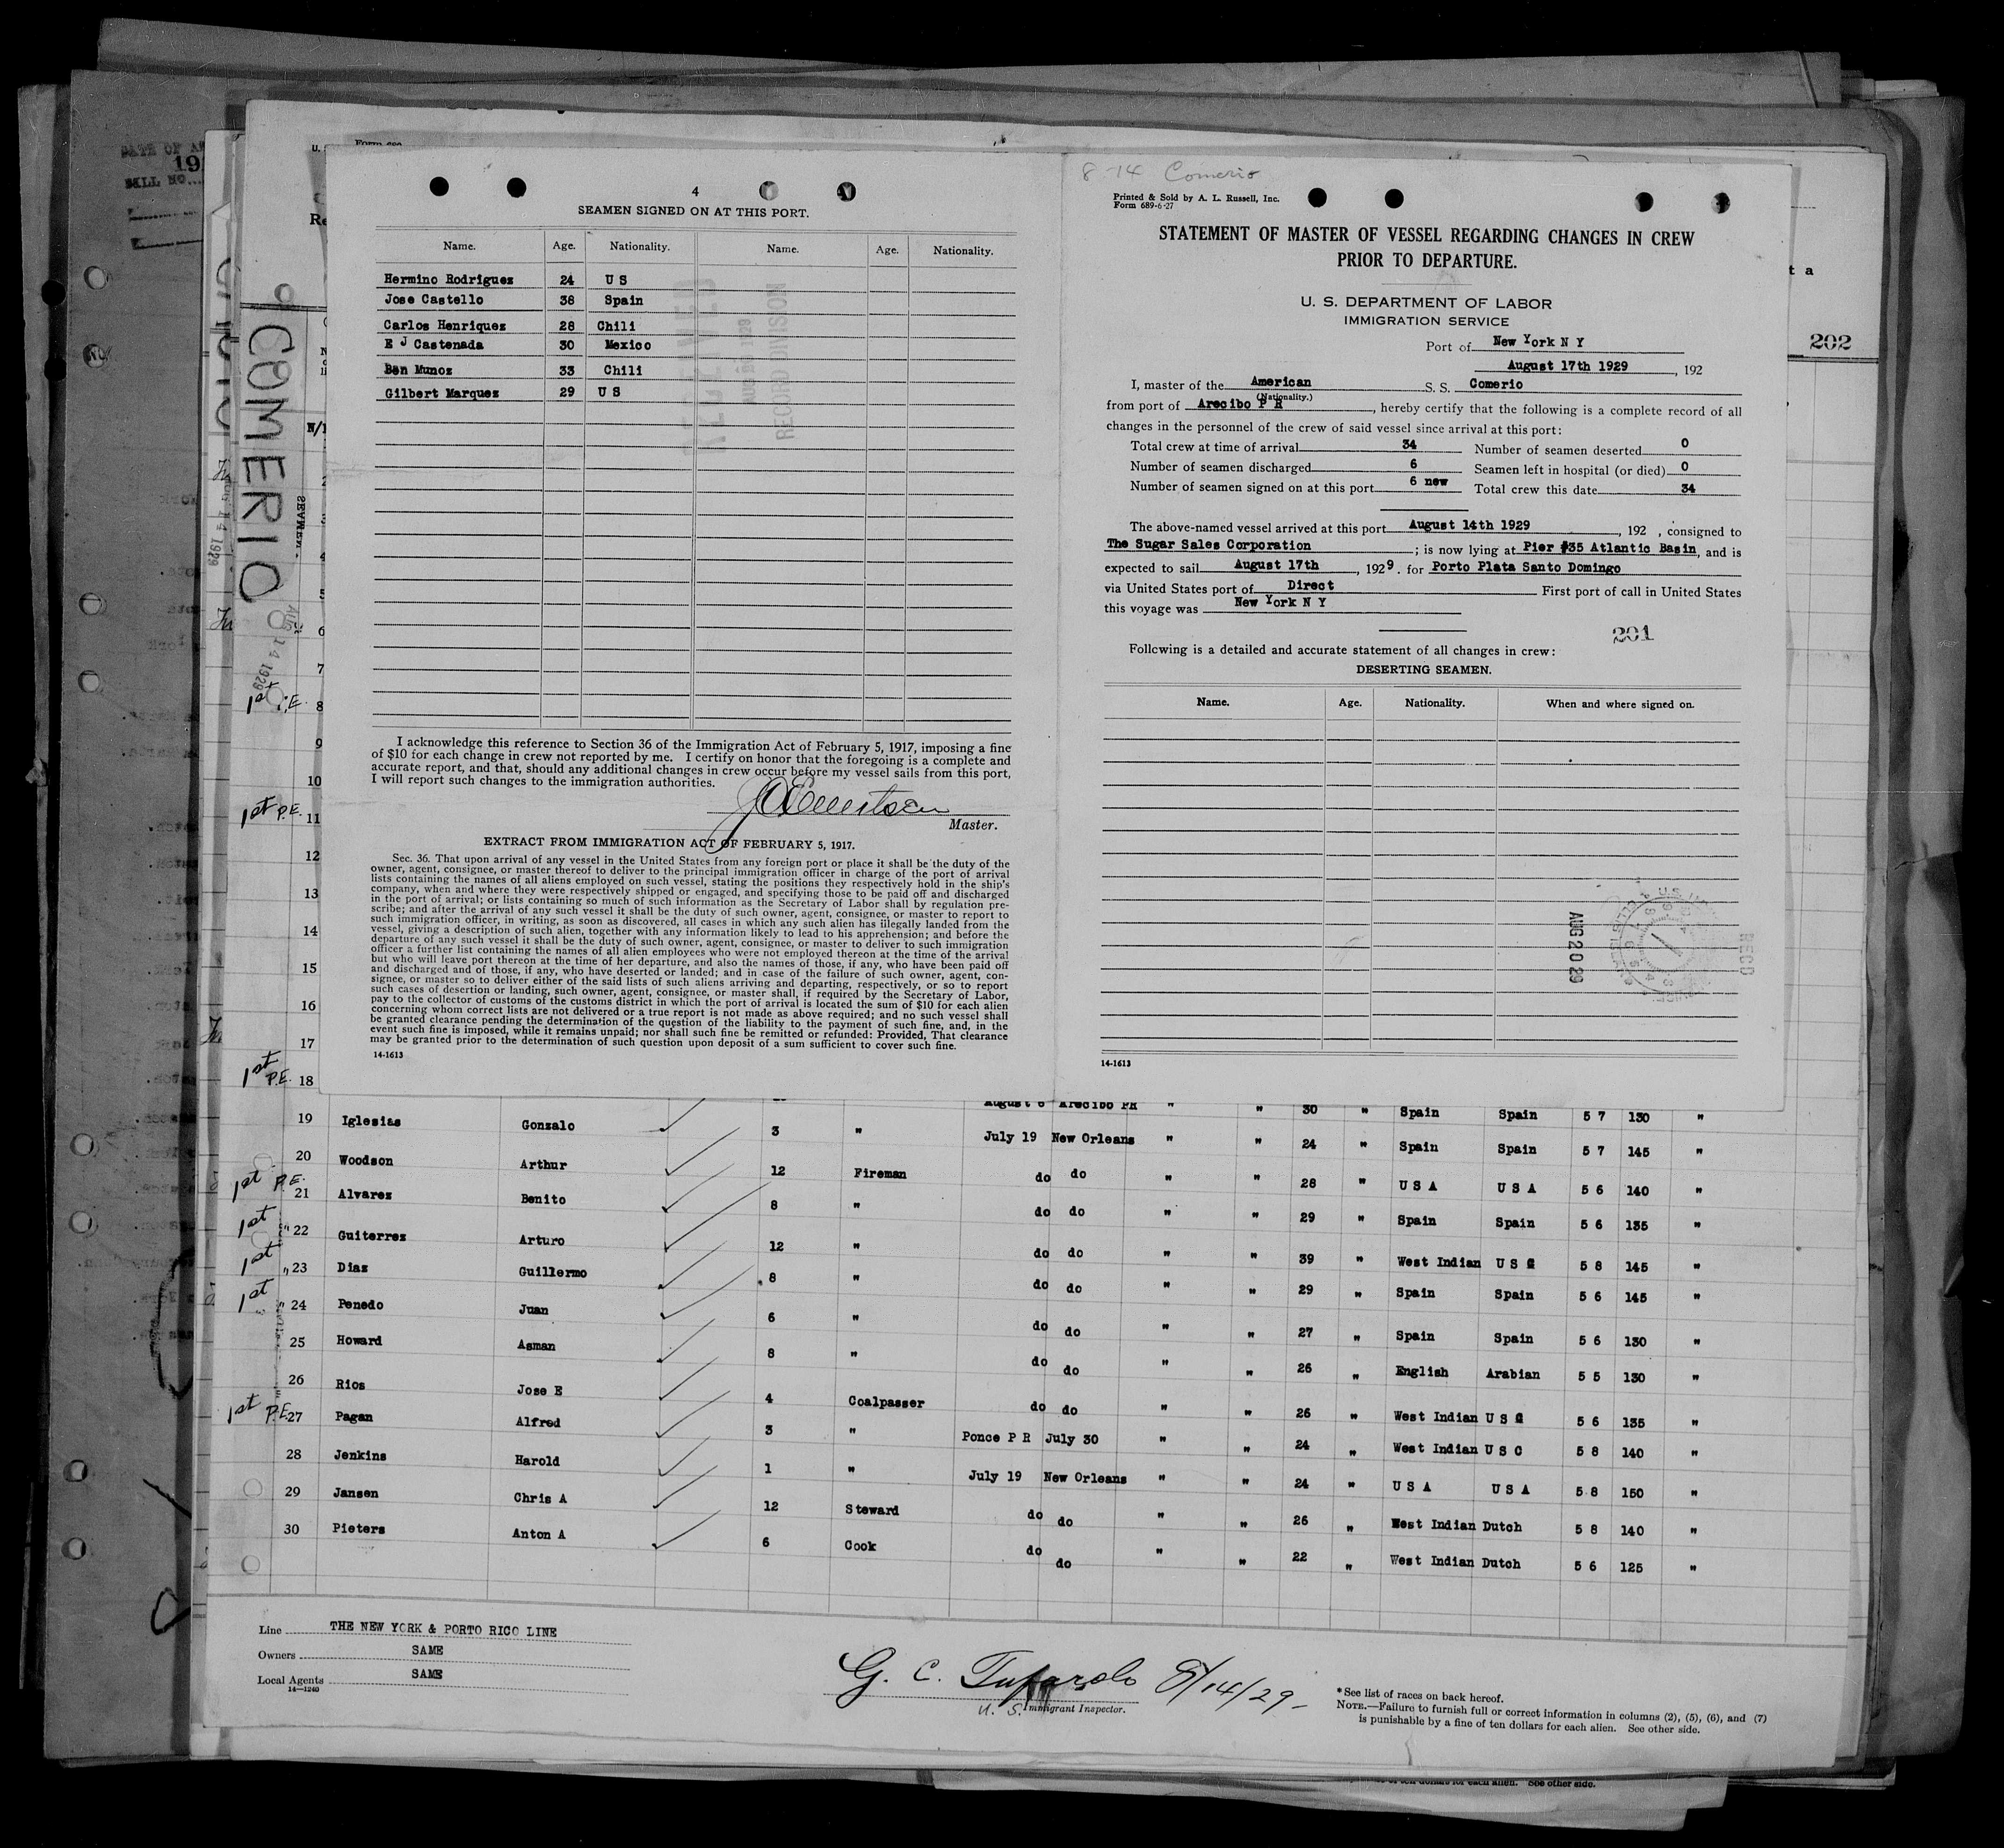 4
SEAMEN SIGNED ON AT THIS PORT.
Name. Age. Nationality. Name. Age. Nationality.
Hermino Rodriguez 24 U S
Jose Castello 38 Spain
Carlos Henriquez 28 Chili
E J Castenada 30 Mexico
Ben Munoz 33 Chili
Gilbert Marquez 29 U S
RECORD DIVISION
I acknowledge this reference to Section 36 of the Immigration Act of February 5, 1917, imposing a fine
of $10 for each change in crew not reported by me. I certify on honor that the foregoing is a complete and
accurate report, and that, should any additional changes in crew occur before my vessel sails from this port,
I will report such changes to the immigration authorities.
Master.
EXTRACT FROM IMMIGRATION ACT OF FEBRUARY 5, 1917.
Sec. 36. That upon arrival of any vessel in the United States from any foreign port or place it shall be the duty of the
owner, agent, consignee, or master thereof to deliver to the principal immigration officer in charge of the port of arrival
lists containing the names of all aliens employed on such vessel, stating the positions they respectively hold in the ship's
company, when and where they were respectively shipped or engaged, and specifying those to be paid off and discharged
in the port of arrival; or lists containing so much of such information as the Secretary of Labor shall by regulation pre-
scribe; and after the arrival of any such vessel it shall be the duty of such owner, agent, consignee, or master to report to
such immigration officer, in writing, as soon as discovered, all cases in which any such alien has illegally landed from the
vessel, giving a description of such alien, together with any information likely to lead to his apprehension; and before the
departure of any such vessel it shall be the duty of such owner, agent, consignee, or master to deliver to such immigration
officer a further list containing the names of all alien employees who were not employed thereon at the time of the arrival
but who will leave port thereon at the time of her departure, and also the names of those, if any, who have been paid off
and discharged and of those, if any, who have deserted or landed; and in case of the failure of such owner, agent, con-
signee, or master so to deliver either of the said lists of such aliens arriving and departing, respectively, or so to report
such cases of desertion or landing, such owner, agent, consignee, or master shall, if required by the Secretary of Labor,
pay to the collector of customs of the customs district in which the port of arrival is located the sum of $10 for each alien
concerning whom correct lists are not delivered or a true report is not made as above required; and no such vessel shall
be granted clearance pending the determination of the question of the liability to the payment of such fine, and, in the
event such fine is imposed, while it remains unpaid; nor shall such fine be remitted or refunded: Provided, That clearance
may be granted prior to the determination of such question upon deposit of a sum sufficient to cover such fine.
14-1613
8-14 Comerio
Printed & Sold by A. L. Russell, Inc.
Form 689-6-27
STATEMENT OF MASTER OF VESSEL REGARDING CHANGES IN CREW
PRIOR TO DEPARTURE.
U. S. DEPARTMENT OF LABOR
IMMIGRATION SERVICE
Port of New York N Y
August 17th 1929, 192
I, master of the American S. S. Comerio
(Nationality.)
from port of Arecibo P R, hereby certify that the following is a complete record of all
changes in the personnel of the crew of said vessel since arrival at this port:
Total crew at time of arrival 34 Number of seamen deserted 0
Number of seamen discharged 6 Seamen left in hospital (or died) 0
Number of seamen signed on at this port 6 new Total crew this date 34
The above-named vessel arrived at this port August 14th 1929, 192 , consigned to
The Sugar Sales Corporation; is now lying at Pier #35 Atlantic Basin, and is
expected to sail August 17th, 1929. for Porto Plata Santo Domingo
via United States port of Direct First port of call in United States
this voyage was New York N Y
201
Following is a detailed and accurate statement of all changes in crew:
DESERTING SEAMEN.
Name. Age. Nationality. When and where signed on.
AUG 20 29
RECD
14-1613
202
COMERIO
AUG 14 1929
1st P.E. 8
9
10
1st P.E. 11
12
13
14
15
16
17
1st P.E. 18
August 6 Arecibo PR " " 30 " Spain Spain 5 7 130 "
19 Iglesias Gonzalo 3 " July 19 New Orleans " " 24 " Spain Spain 5 7 145 "
20 Woodson Arthur 12 Fireman do do " " 28 " U S A U S A 5 6 140 "
1st P.E. 21 Alvarez Benito 8 " do do " " 29 " Spain Spain 5 6 135 "
1st " 22 Guiterrez Arturo 12 " do do " " 39 " West Indian U S C 5 8 145 "
1st " 23 Diaz Guillermo 8 " do do " " 29 " Spain Spain 5 6 145 "
1st " 24 Penedo Juan 6 " do do " " 27 " Spain Spain 5 6 130 "
25 Howard Asman 8 " do do " " 26 " English Arabian 5 5 130 "
26 Rios Jose E 4 Coalpasser do do " " 26 " West Indian U S C 5 6 135 "
1st P.E. 27 Pagan Alfred 3 " Ponce P R July 30 " " 24 " West Indian U S C 5 8 140 "
28 Jenkins Harold 1 " July 19 New Orleans " " 24 " U S A U S A 5 8 150 "
29 Jansen Chris A 12 Steward do do " " 26 " West Indian Dutch 5 8 140 "
30 Pieters Anton A 6 Cook do do " " 22 " West Indian Dutch 5 6 125 "
Line THE NEW YORK & PORTO RICO LINE
Owners SAME
Local Agents SAME
14—1240
G. C. Tufarolo 8/14/29
U. S. Immigrant Inspector.
*See list of races on back hereof.
NOTE.—Failure to furnish full or correct information in columns (2), (5), (6), and (7)
is punishable by a fine of ten dollars for each alien. See other side.
See other side.